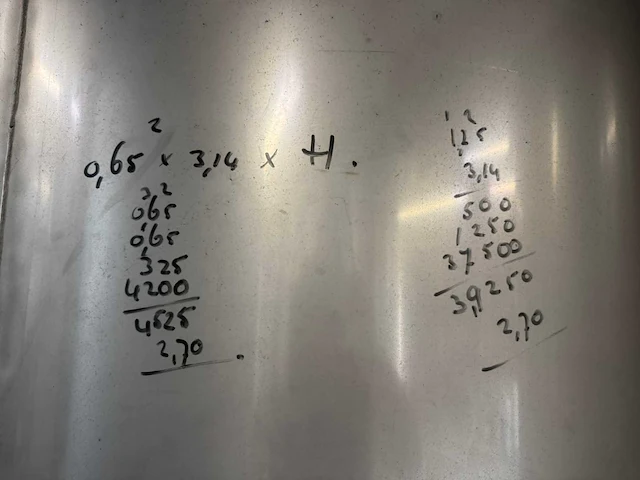 2
0,65 x 3,14 x H.
3,2
0,65
0,65
325
4200
4525
2,70 .
1 2
1,25
3,14
500
1250
37500
3,9250
2,70